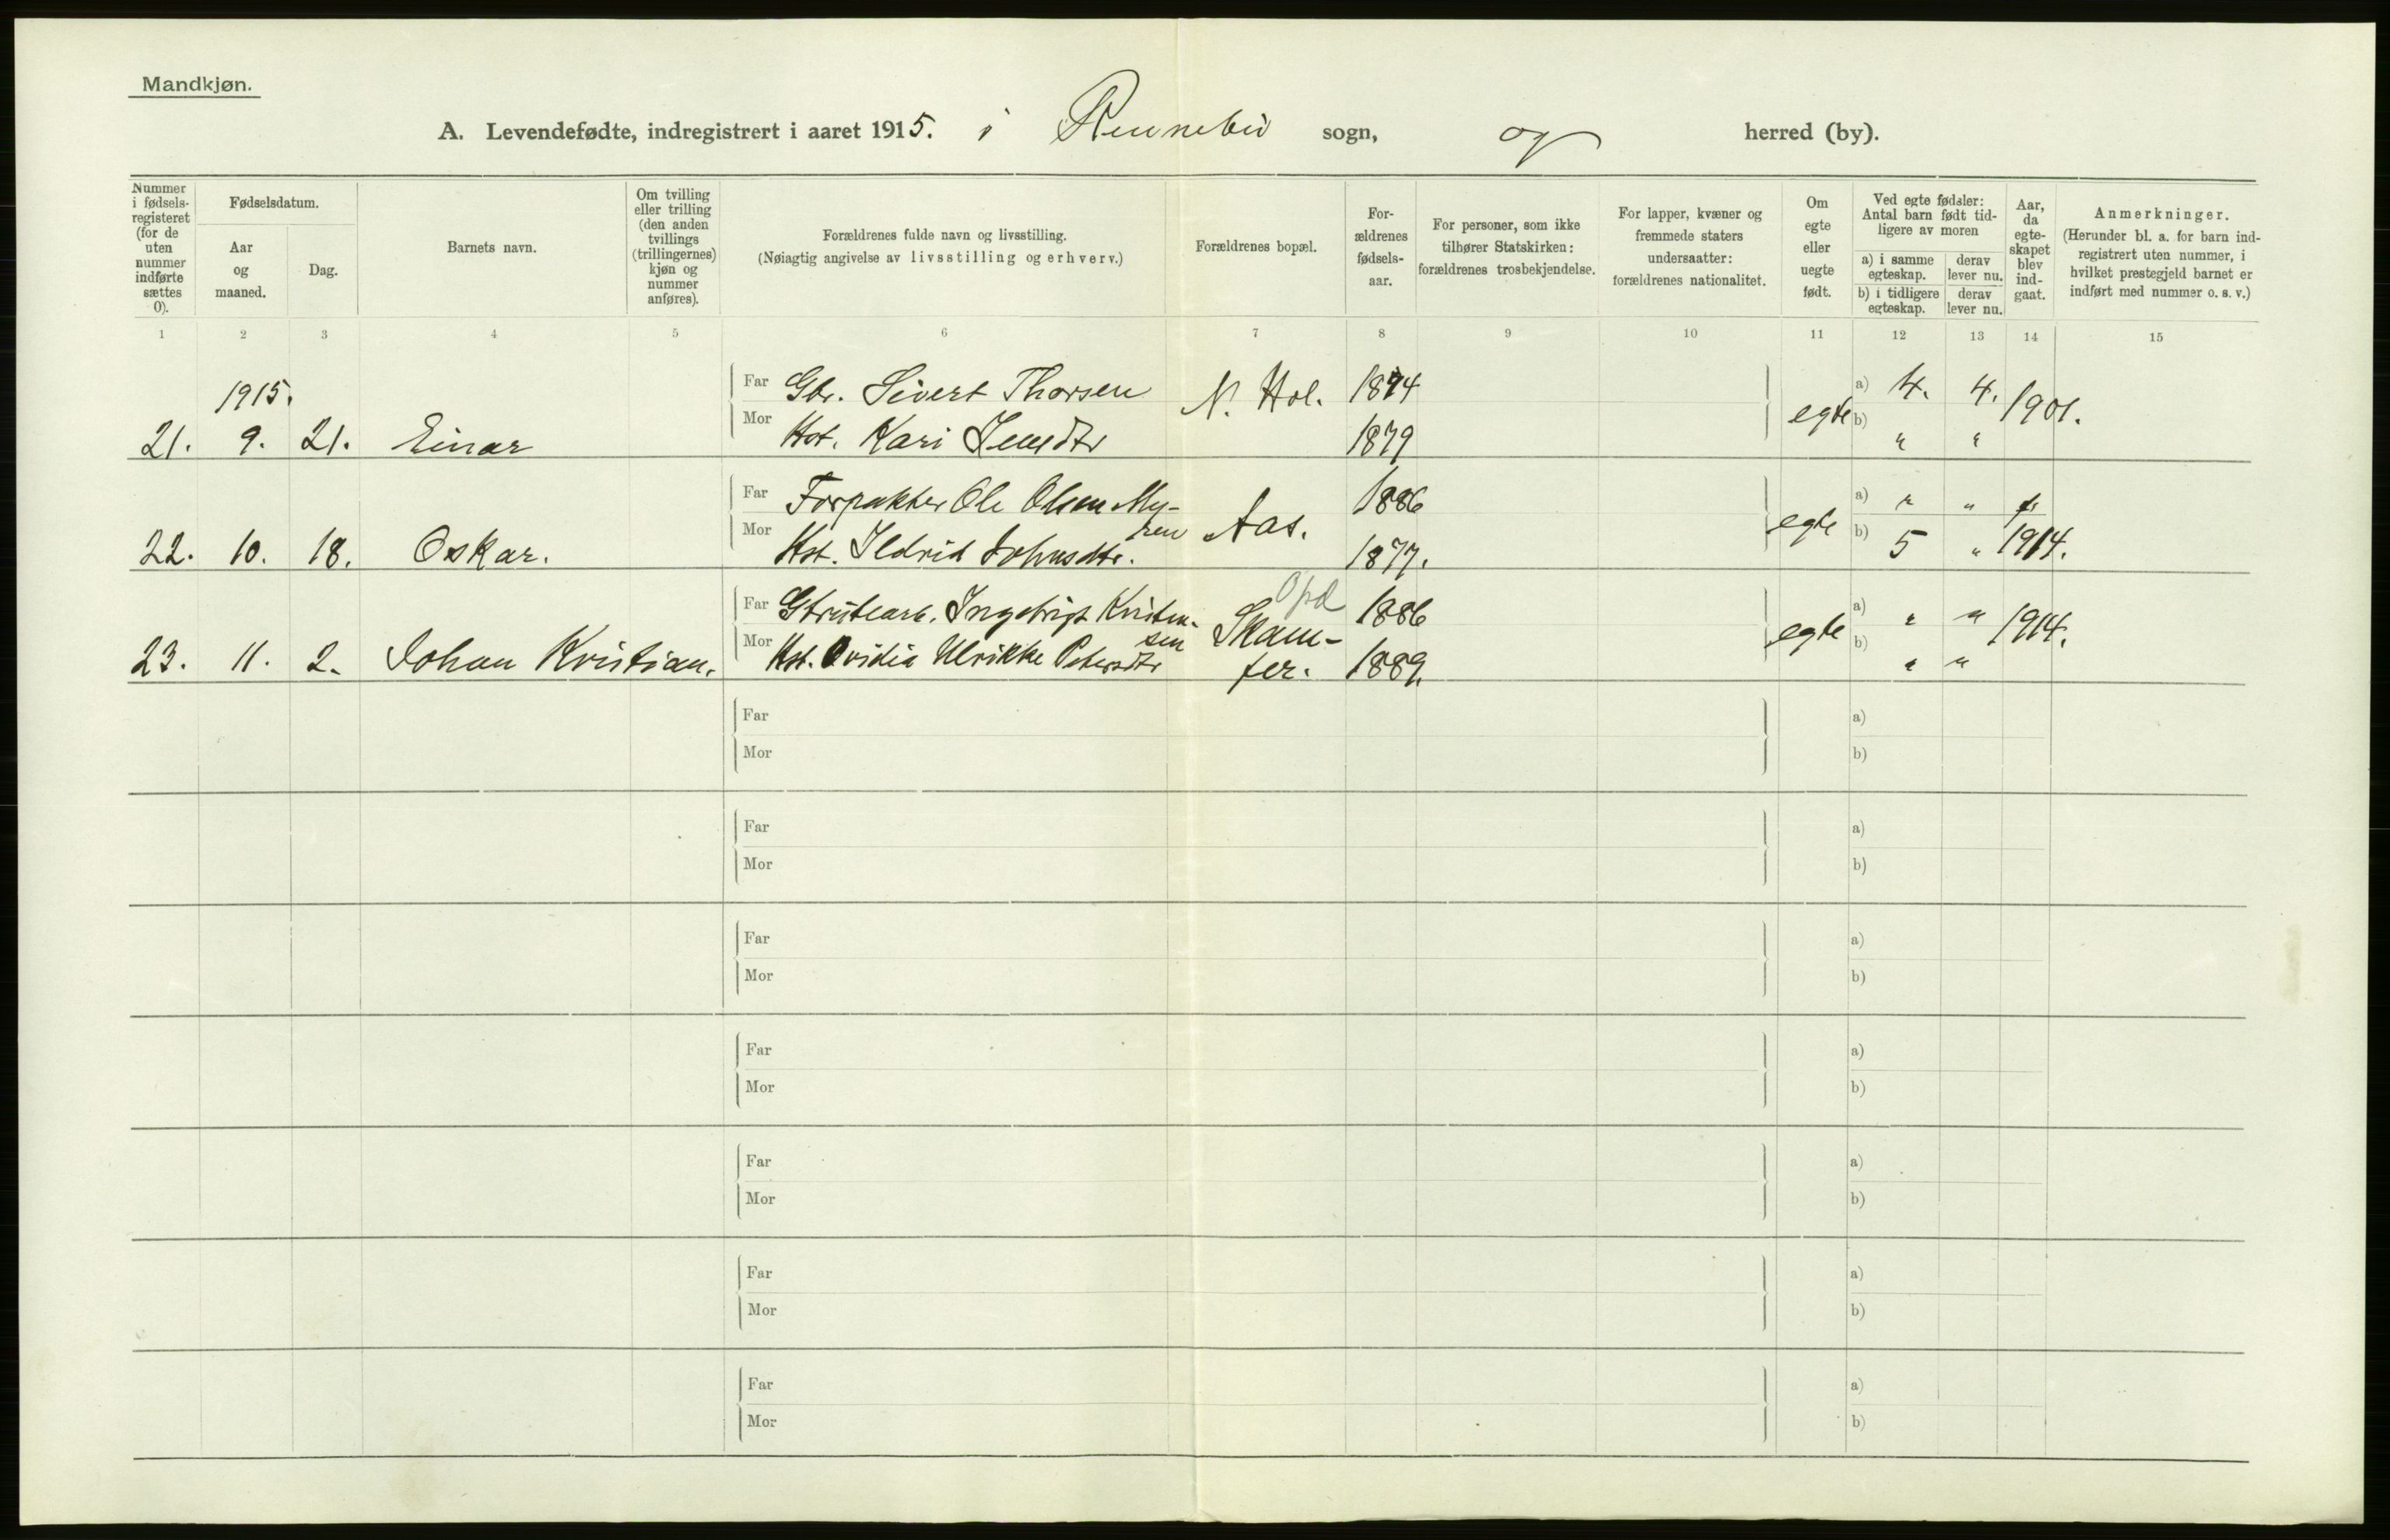 Mandkjøn.
A. Levendefødte, indregistrert i aaret 1915. i Rennebu sogn, og herred (by).
Nummer i fødsels-registeret (for de uten nummer indførte sættes 0).
Fødselsdatum.
Aar og maaned.
Dag.
Barnets navn.
Om tvilling eller trilling (den anden tvillings (trillingernes) kjøn og nummer anføres).
Forældrenes fulde navn og livsstilling.
(Nøiagtig angivelse av livsstilling og erhverv.)
Forældrenes bopæl.
For-ældrenes fødsels-aar.
For personer, som ikke tilhører Statskirken: forældrenes trosbekjendelse.
For lapper, kvæner og fremmede staters undersaatter: forældrenes nationalitet.
Om egte eller uegte født.
Ved egte fødsler: Antal barn født tid-ligere av moren
a) i samme egteskap.
derav lever nu.
b) i tidligere egteskap.
derav lever nu.
Aar, da egte-skapet blev ind-gaat.
Anmerkninger.
(Herunder bl. a. for barn ind-registrert uten nummer, i hvilket prestegjeld barnet er indført med nummer o. s. v.)
1 2 3 4 5 6 7 8 9 10 11 12 13 14 15
1915.
Far Gbr. Sivert Thorsen N. Hol. 1874 a) 4. 4.
21. 9. 21. Einar Mor Hst. Kari 1879 egte b) " " 1901.
Far Forpakter Ole Olsen My-ren Aas. 1886 a) " "
22. 10. 18. Oskar. Mor Hst. Ildrid Johnsdtr. 1877. egte b) 5 " 1914.
Opd
Far Ingebrigt Kristen-sen 1886 a) " "
23. 11. 2. Johan Kristian. Mor Hst. Ovidia Ulrikke Petersdtr Skam-fer. 1889. egte b) " " 1914.
Far a)
Mor b)
Far a)
Mor b)
Far a)
Mor b)
Far a)
Mor b)
Far a)
Mor b)
Far a)
Mor b)
Far a)
Mor b)